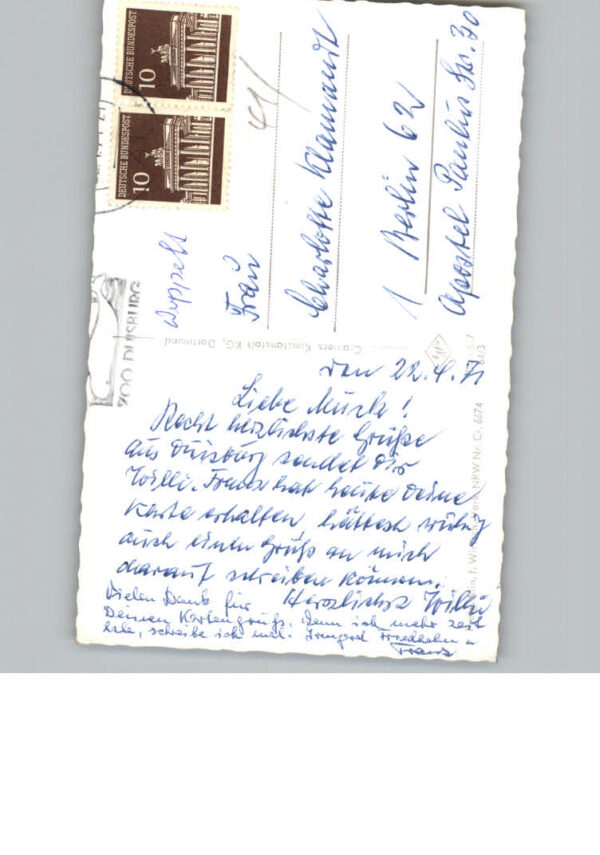 DEUTSCHE BUNDESPOST
10
DEUTSCHE BUNDESPOST
10
ZOO DUISBURG
Frau
Charlotte
1 Berlin 62
Apostel Paulus Str. 30
Carriers Kunstanstalt KG, Dortmund
den 22.4.71
Liebe
Recht herzlichste Grüße
aus Duisburg sendet Dir
Willi. Franz hat heute Deine
Karte erhalten, hättest ruhig
auch einen Gruß an mich
darauf schreiben können.
Herzlichst Willi
Vielen Dank für
Deinen Kartengruß. Wenn ich mehr Zeit
habe, schreibe ich mal. Irmgard Friedhelm -
Franz